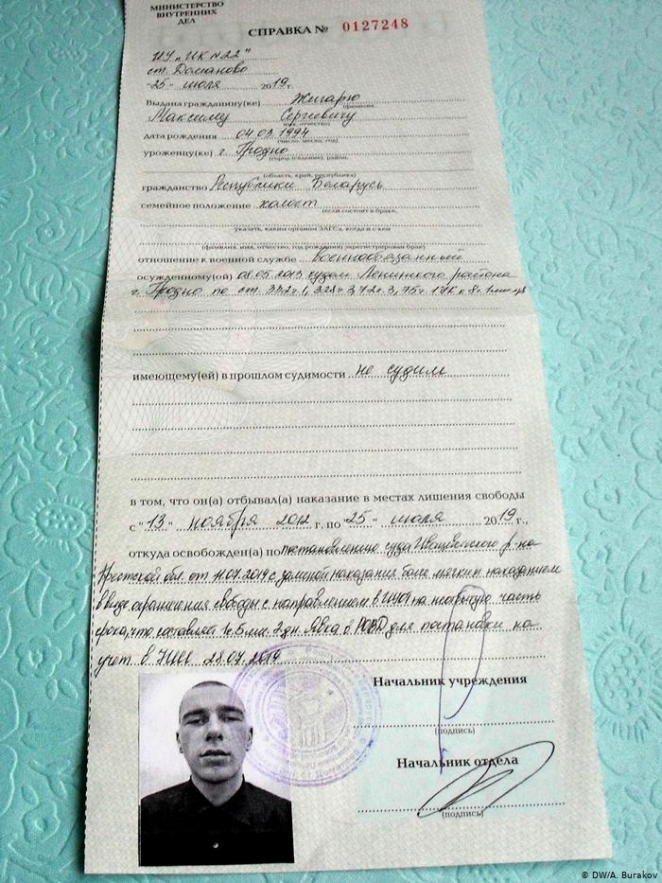 МИНИСТЕРСТВО
ВНУТРЕННИХ
ДЕЛ
СПРАВКА № 0127248
ИУ "ИК №22"
ст. Доманово
"25" июля 2019г.
Выдана гражданину(ке) Жигарю
(фамилия,
Максиму Сергеевичу
имя, отчество)
дата рождения 04.03.1994
(число, месяц, год)
уроженцу(ке) г. Гродно
(город (селение), район,
(область, край, республика)
гражданство Республики Беларусь
семейное положение холост
(если состоит в браке,
указать, каким органом ЗАГСа, когда и с кем
(фамилия, имя, отчество, год рождения) зарегистрирован брак)
отношение к военной службе военнообязанный
осужденному(ой) 08.05.2013 судом Ленинского района
г. Гродно по ст. 328 ч. 3, 72 ч. 3, УК к 8 г.
имеющему(ей) в прошлом судимости не судим
в том, что он(а) отбывал(а) наказание в местах лишения свободы
с "13" ноября 2012 г. по "25" июля 2019 г.,
откуда освобожден(а) по постановлению суда Ивацевичского р-на
Брестской обл. от 11.07.2019 с заменой наказания более мягким наказанием
в виде ограничения свободы с направлением в ИУОТ на неотбытую часть
срока, что составляет 1г. 5 мес. 2 дн. Явка в РОВД для постановки на
учет в УИИ 28.07.2019
Начальник учреждения
(подпись)
Начальник отдела
(подпись)
© DW/A. Burakov